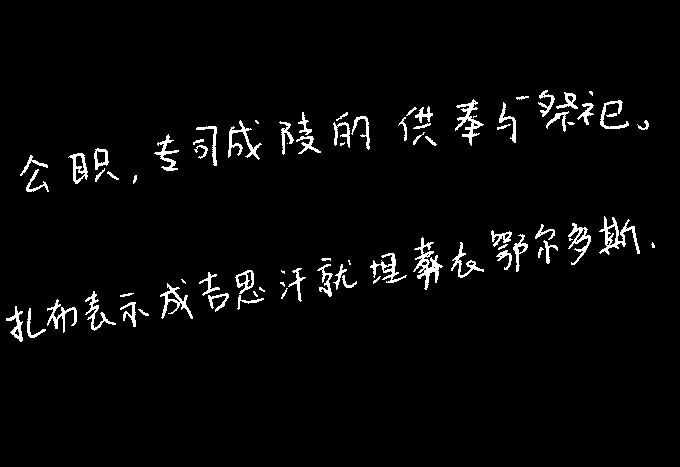 公职,专司成陵的供奉与祭祀。
扎布表示成吉思汗就埋葬在鄂尔多斯.